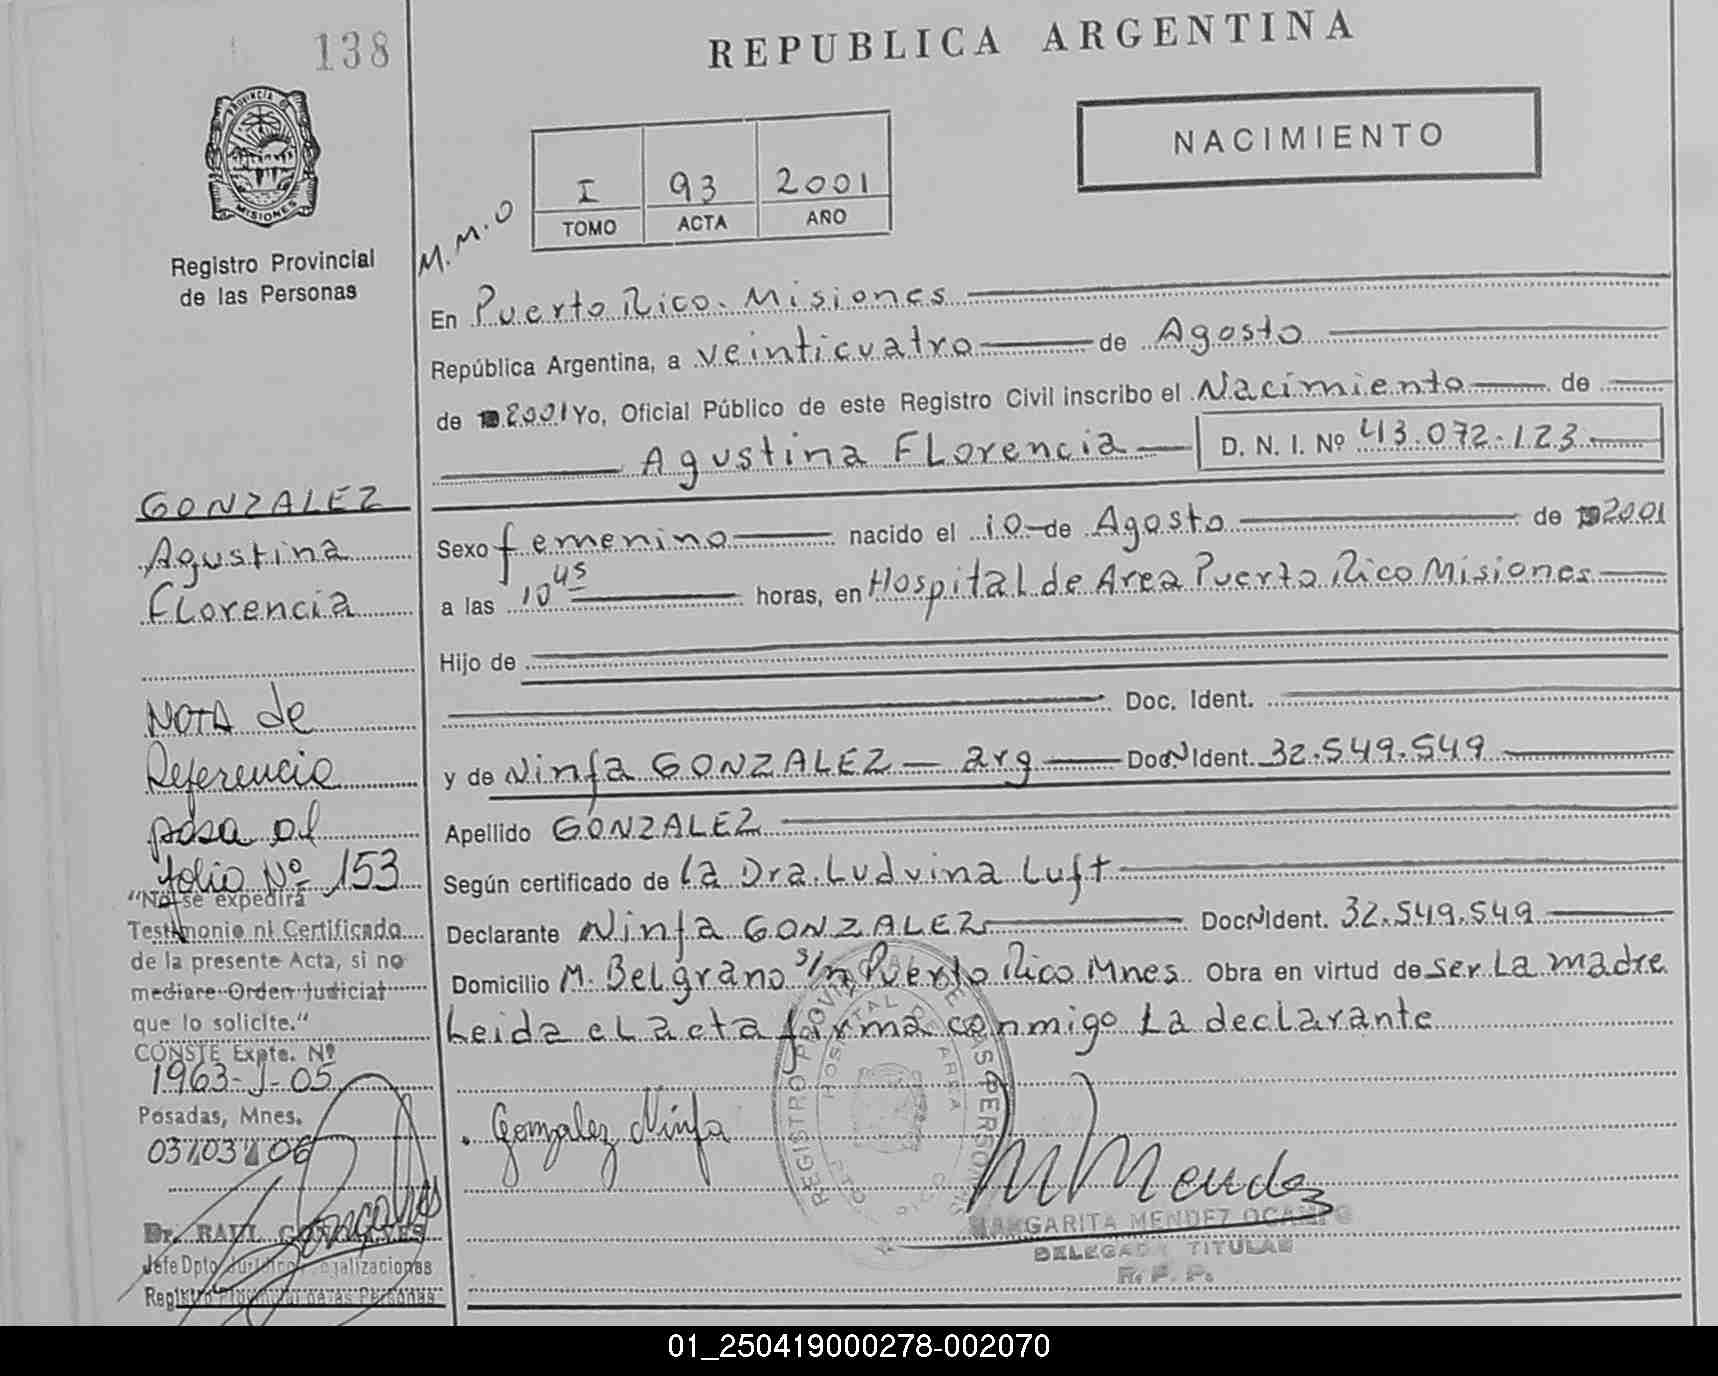 138
REPUBLICA ARGENTINA
NACIMIENTO
PROVINCIA DE
MISIONES
Registro Provincial
de las Personas
M.M.O
I 93 2001
TOMO ACTA AÑO
En Puerto Rico. Misiones
República Argentina, a veinticuatro de Agosto
de 2001 Yo, Oficial Público de este Registro Civil inscribo el Nacimiento de
Agustina FLorencia D. N. I. Nº 43.072.123
Sexo femenino nacido el 10 de Agosto de 2001
a las 10 45 horas, en HospitaL de Area Puerto Rico Misiones
Hijo de
Doc. Ident.
y de Ninfa GONZALEZ — arg Doc N Ident. 32.549.549
Apellido GONZALEZ
Según certificado de La Dra. Ludvina Luft
Declarante Ninfa GONZALEZ Doc N Ident. 32.549.549
Domicilio M. BeLgrano s/n Puerto Rico Mnes. Obra en virtud de ser La madre
Leida eL acta firma conmigo La decLarante
GONZALEZ
Agustina
FLorencia
NOTA de
Referencia
pasa al
folio Nº 153
"No se expedirá
Testimonio ni Certificado
de la presente Acta, si no
mediare Orden Judicial
que lo solicite."
CONSTE Expte. Nº
1963-J-05
Posadas, Mnes.
03/03/06
Dr. RAUL GONCALVES
Jefe Dpto. Jurídico Legalizaciones
Registro Provincial de las Personas
Gonzalez Ninfa
REGISTRO PROVINCIAL DE LAS PERSONAS
HOSPITAL DE AREA
PTO RICO
M Mendez
MARGARITA MENDEZ OCAMPO
DELEGADA TITULAR
R. P. P.
01_250419000278-002070